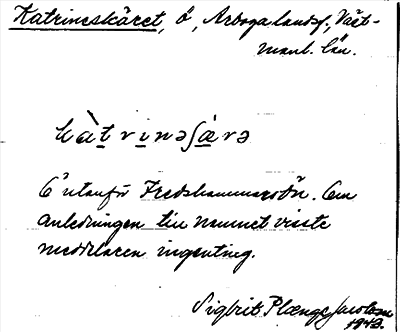 Katrineskäret, ö, Arboga landsf., Väst-
manl. län.
kàtrinəʃærə
Ö utanför Fredshammarsön. Om
anledningen till namnet visste
meddelaren ingenting.
Sigbrit Plænge Jacobson
1948.